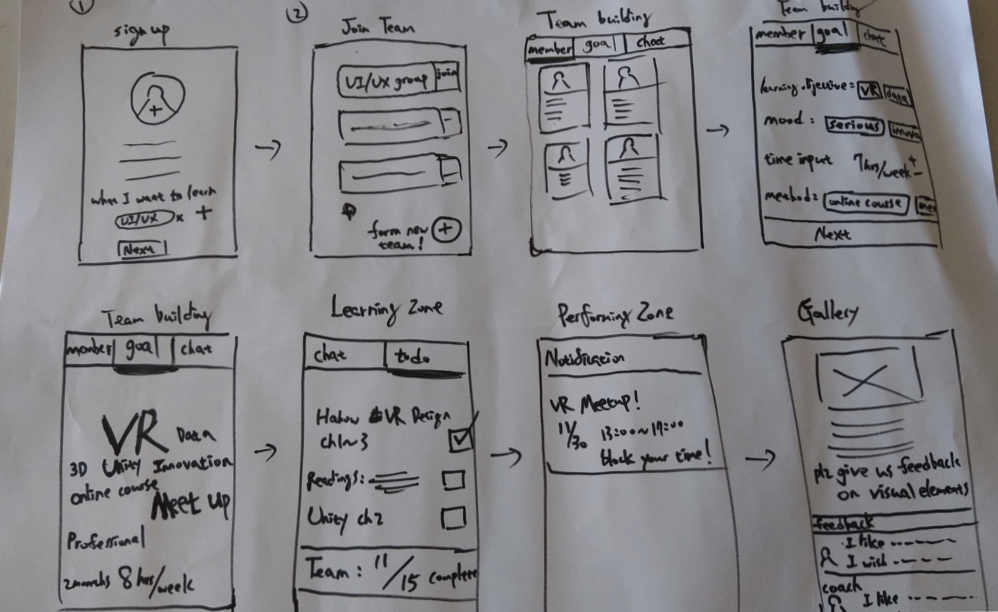 ①
sign up
what I want to learn
UI/UX x +
Next
②
Join Team
UI/UX group join
form new
team!
Team building
member goal chat
Team building
member goal chat
learning objective= VR data
mood: serious
time input 7hrs/week + -
method: online course
Next
Team building
member goal chat
VR Data
3D Unity Innovation
online course
Meet up
Professional
2months 8hrs/week
Learning Zone
chat todo
Hahow VR Design
ch1~3
Readings:
Unity ch2
Team: 11/15 complete
Performing Zone
Notification
VR Meetup!
11/30 13:00~17:00
block your time!
Gallery
plz give us feedback
on visual elements
feedback
I like
I wish
coach
I like